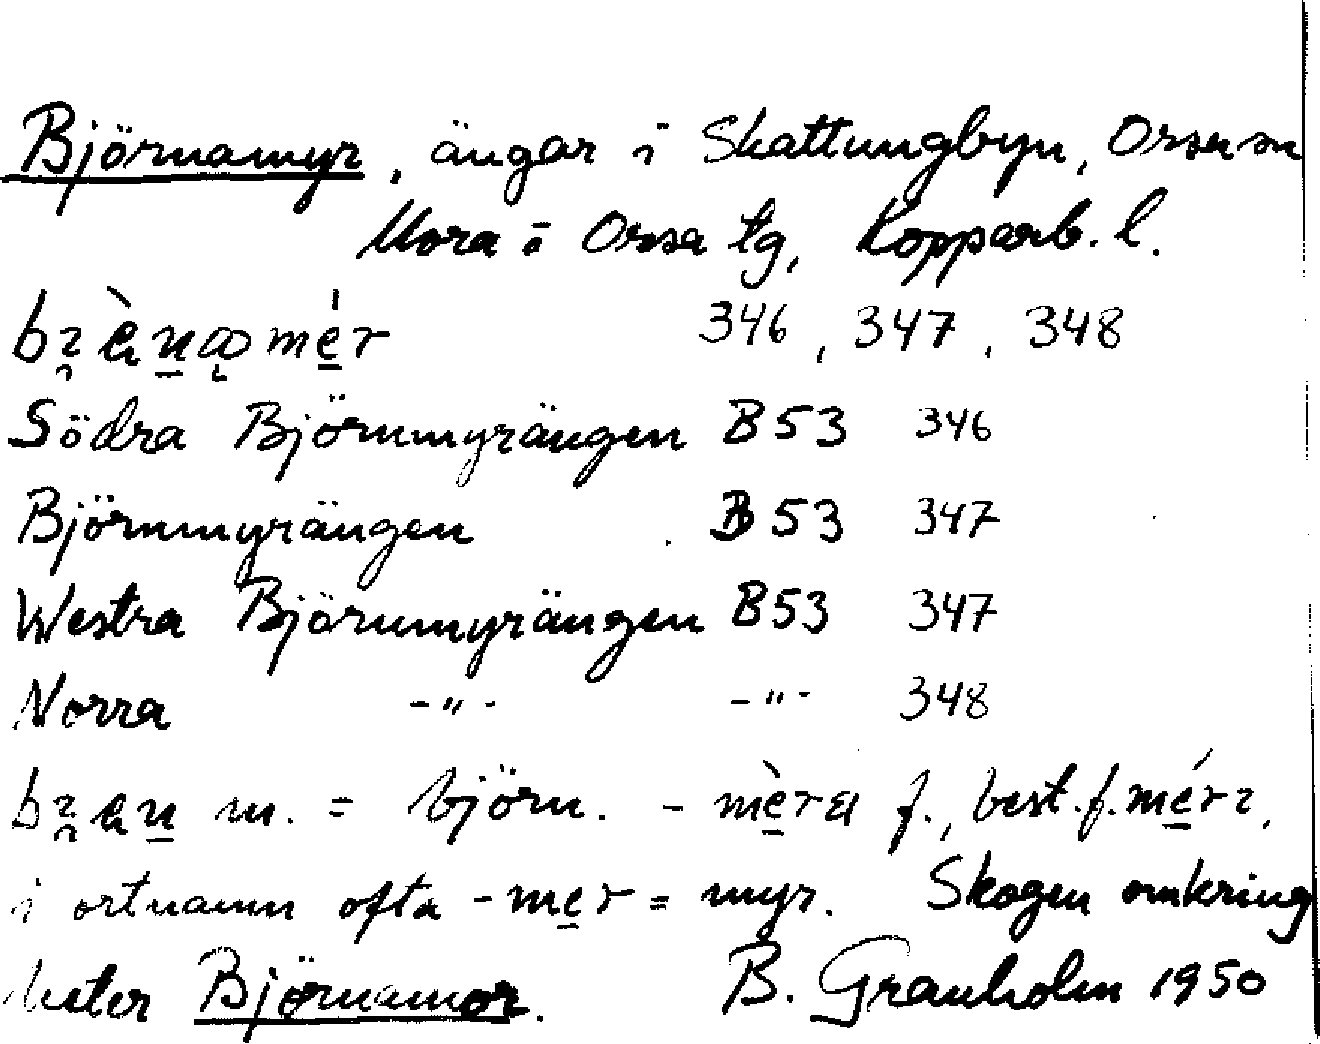 Björnamyr, ängar i Skattungbyn, Orsa sn
Mora o Orsa tg, Kopparb. l.
346, 347, 348
Södra Björnmyrängen B 53 346
Björnmyrängen B 53 347
Westra Björnmyrängen B 53 347
Norra -"- -"- 348
m. = björn. - mèra f., best. f. mérɩ,
i ortnamn ofta - mer = myr. Skogen omkring
heter Björnamor. B. Granholm 1950